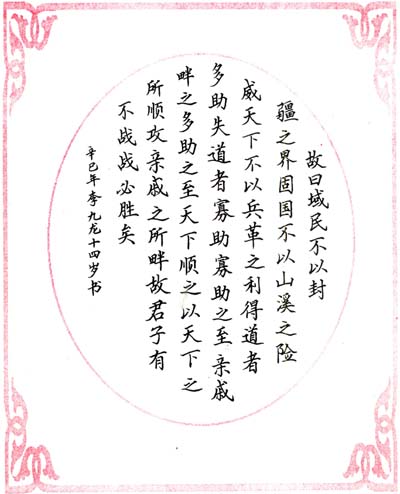 故曰域民不以封
疆之界固国不以山溪之险
威天下不以兵革之利得道者
多助失道者寡助寡助之至亲戚
畔之多助之至天下顺之以天下之
所顺攻亲戚之所畔故君子有
不战战必胜矣
辛巳年李九龙十四岁书